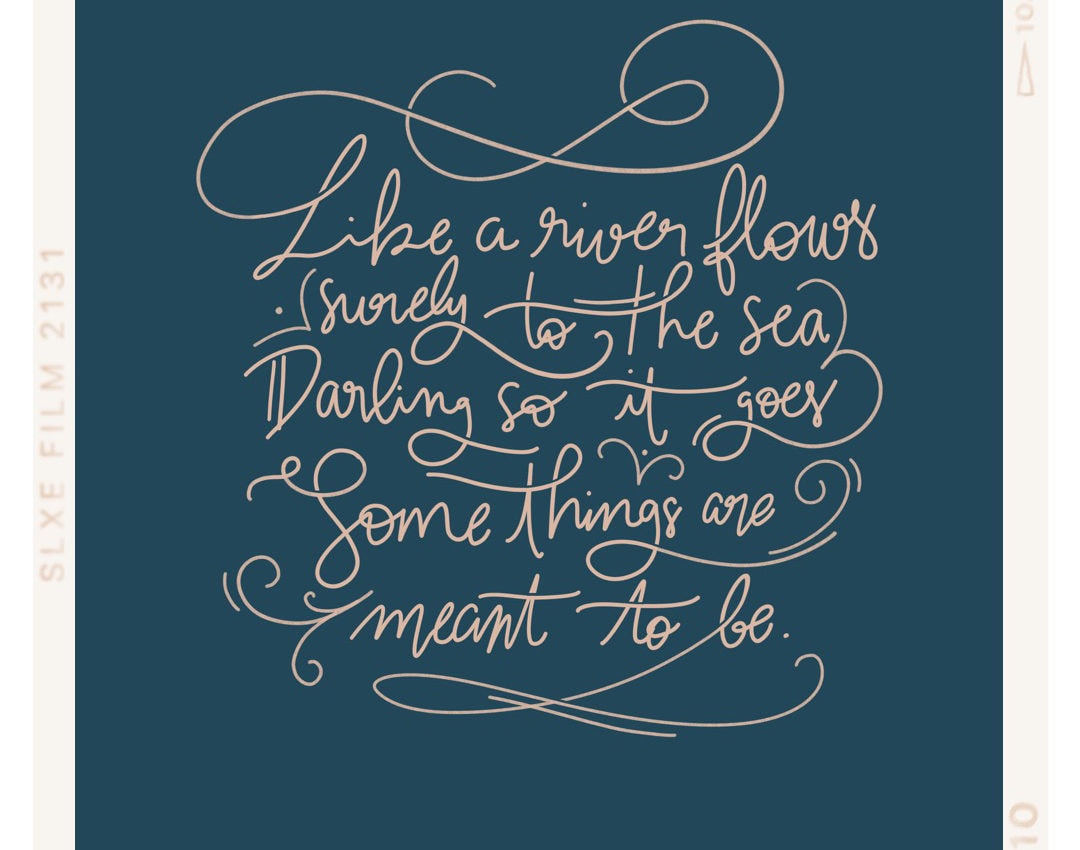 Like a river flows
surely to the sea
Darling so it goes
Some things are
meant to be.
SLXE FILM 2131
10